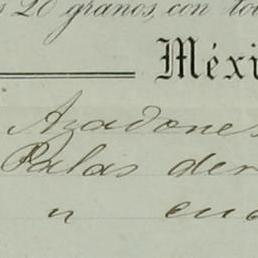 20 granos, con to
Méxi
Azadones
Palas der
" cua